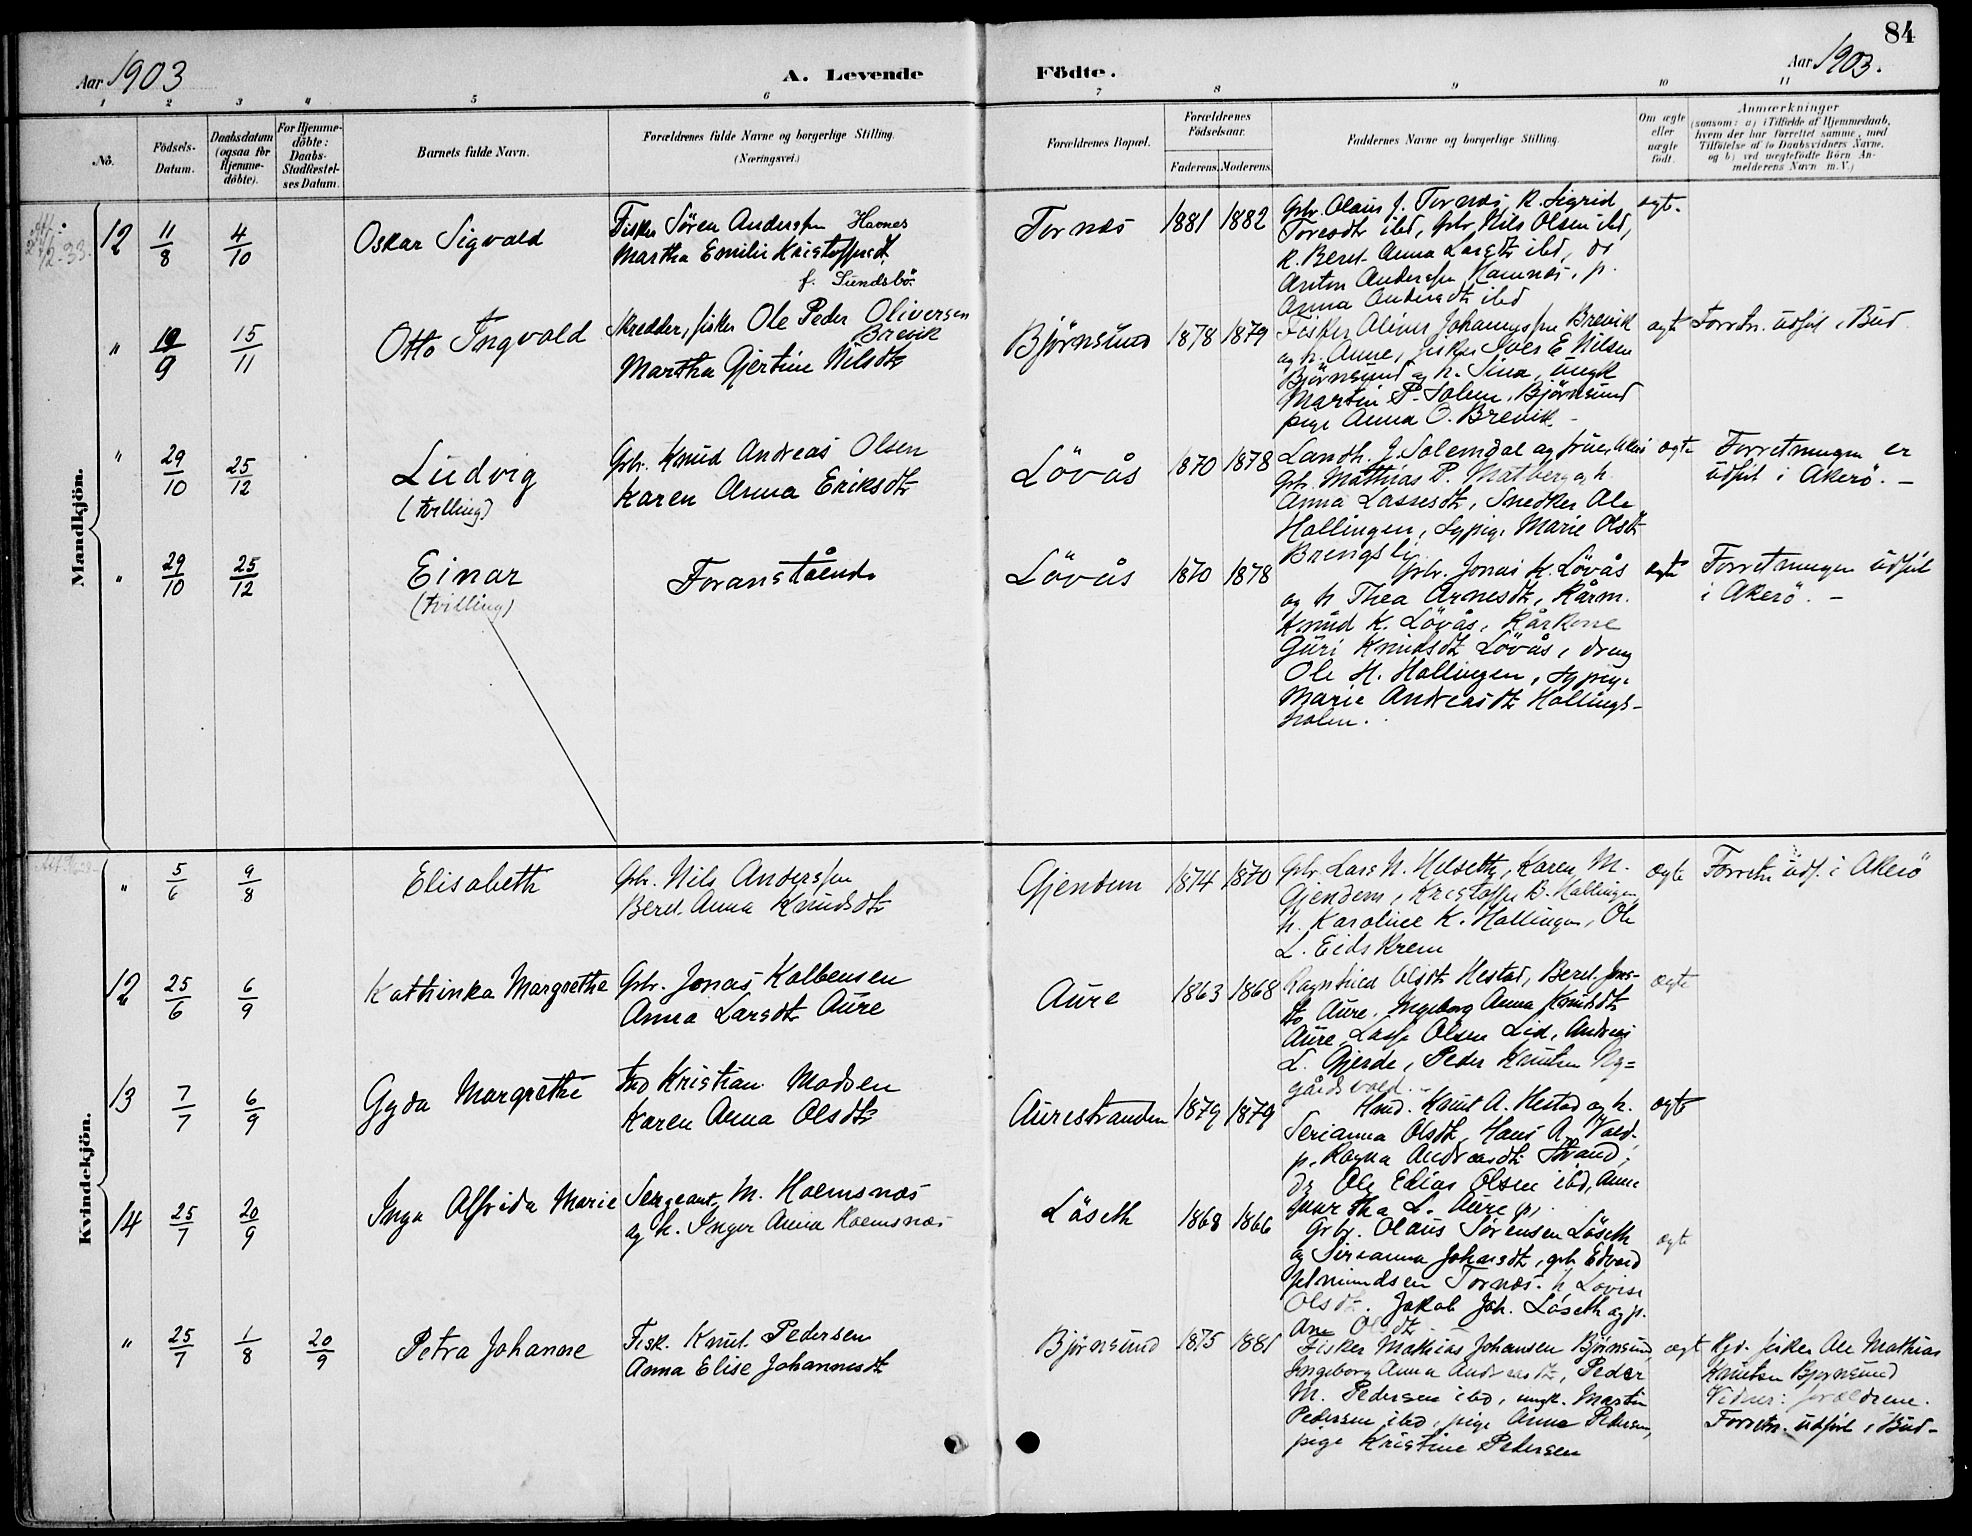 84
Aar 1903
A. Levende Födte.
Aar 1903.
1 2 3 4 5 6 7 8 9 10 11
No.
Födsels-Datum.
Daabsdatum (ogsaa för Hjemme-döbte).
For Hjemme-döbte: Daabs-Stadfæstel-ses Datum.
Barnets fulde Navn.
Forældrenes fulde Navne og borgerlige Stilling. (Næringsvei.)
Forældrenes Bopæl.
Forældrenes Födselsaar.
Faderens. Moderens.
Faddernes Navne og borgerlige Stilling.
Om ægte eller uægte födt.
Anmærkninger
(saasom: a) i Tilfælde af Hjemmedaab,
hvem der har forrettet samme, med
Tilföielse af to Daabsvidners Navne,
og b) ved uægtefödte Börn An-
melderens Navn m. V.)
Mandkjön.
12 11/8 4/10 Oskar Sigvald
Fisker Sören Anderssen Havnes
Martha Emilie Kristoffersdt.
f. Sundsbö.
Tornæs 1881 1882
Gbr. Olaus J. Tornæs, k. Sigrid
Toresdtr ibd, Gbr. Nils Olsen ibd,
k. Beret Anna Larsdtr ibd, dr
Anton Anderssen Havnæs, p.
Anna Andersdtr ibd
ægte.
" 10/9 15/11 Otto Ingvald
Skredder, fisker Ole Peder Oliversen
Brevik
Martha Gjertine Nilsdtr
Björnsund 1878 1879
Fisker Olinus Johanssen Brevik
og h. Anne, fisker Iver E. Nilsen
Björnsund og h. Sina, ungk
Martin P. Solem, Björnsund
pige Anna O. Brevik
ægte Forretn. udfört i Bud
" 29/10 25/12 Ludvig
(tvilling)
Gbr. Knud Andreas Olsen
Karen Anna Eriksdtr
Lövås 1870 1878
Landh. J. Solemdal og frue,
Gbr. Mathias P. Malberg og h.
Anna Lassesdtr, Snedker Ole
Hollingen, Sypige Marie Olsdtr
Brengsli
ægte Forretningen er
udfört i Akerö. -
" 29/10 25/12 Einar
(tvilling)
Foranstående
Lövås 1870 1878
Gbr. Jonas K. Lövås
og h Thea Arnesdtr, Kårm.
Knud K. Lövås, Kårkone
Guri Knudsdtr Lövås, dreng
Ole H. Hollingen, sypige
Marie Andreasdtr Hollings-
holm.
ægte Forretningen udfört
i Akerö. -
Kvindekjön.
" 5/6 9/8 Elisabeth
Gbr. Nils Anderssen
Beret Anna Knudsdtr
Gjendem 1874 1870
Gbr. Lars N. Helseth, Karen M.
Gjendem, Kristoffer B. Hollingen,
h. Karoline K. Hollingen, Ole
L. Eidskrem
ægte Forretn udf. i Akerö
12 25/6 6/9 Kathinka Margrethe
Gbr. Jonas Kolbensen
Anna Larsdtr Aure
Aure 1863 1868
Ragnhild Olsdtr Hestad, Beret Jons-
dtr Aure, Ingeborg Anna Knudsdtr
Aure, Lasse Olsen Lid, Andreas
L. Gjerde, Peder Knutsen Ny-
gårdsvold.
ægte
13 7/7 6/9 Gyda Margrethe
Ind Kristian Madsen
Karen Anna Olsdtr
Aurestranden 1879 1879
Hmd. Knut A. Hestad og h.
Serianna Olsdtr, Hans A. Vold,
p. Ragna Andreasdtr Strand,
Dr Ole Edias Olsen ibd, Anne
Martha L. Aure p.
ægte
14 25/7 20/9 Inga Alfrida Marie
Sergeant M. Holmsnæs
og h. Inger Anna Holmsnæs
Löseth 1868 1866
Gbr. Olaus Sørensen Löseth
og Serianna Johansdtr, gbr Edvard
Tornæs, h Lovise
Olsdt. Jakob Joh. Löseth og p.
Ane Olsdtr
ægte
" 25/7 1/8 20/9 Petra Johanne
Fisk. Knut Pedersen
Anna Elise Johannesdtr
Björnsund 1875 1881
Fisker Mathias Johansen Björnsund,
Ingeborg Anna Andreasdtr, Peder
M. Pedersen ibd, ungk. Martin
Pedersen ibd, pige Anna Pedersen,
pige Kristine Pedersen
ægte Hjd. fisker Ole Mathias
Knutsen Bjørnsund
Vidner: foreldrene.
Forretn. udfört i Bud-